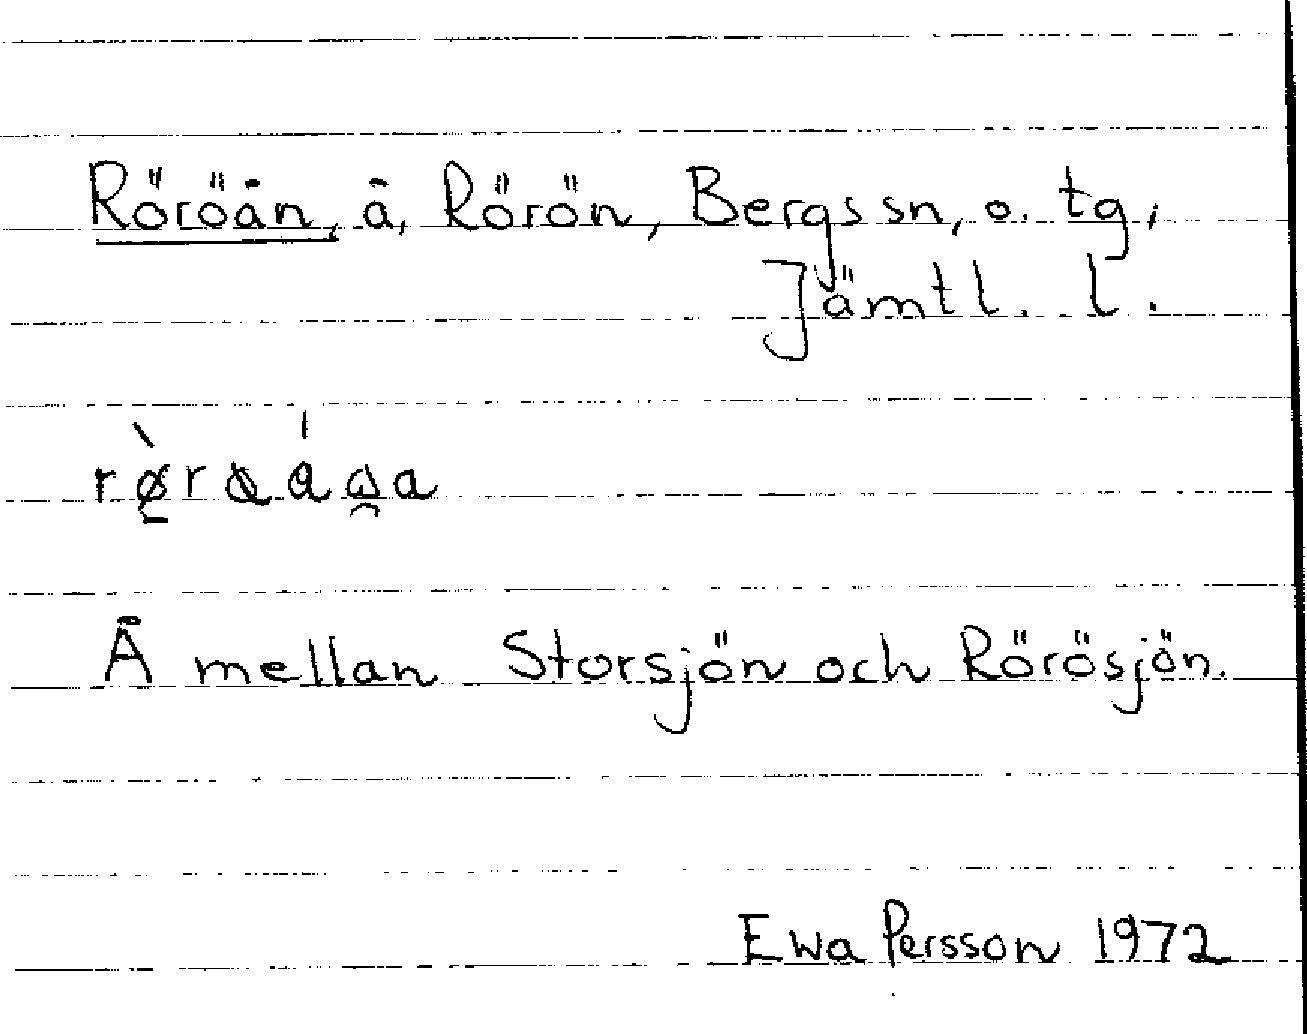 Röröån, å, Rörön, Bergs sn, o. tg,
Jämtl. l.
Å mellan Storsjön och Rörösjön.
Ewa Persson 1972